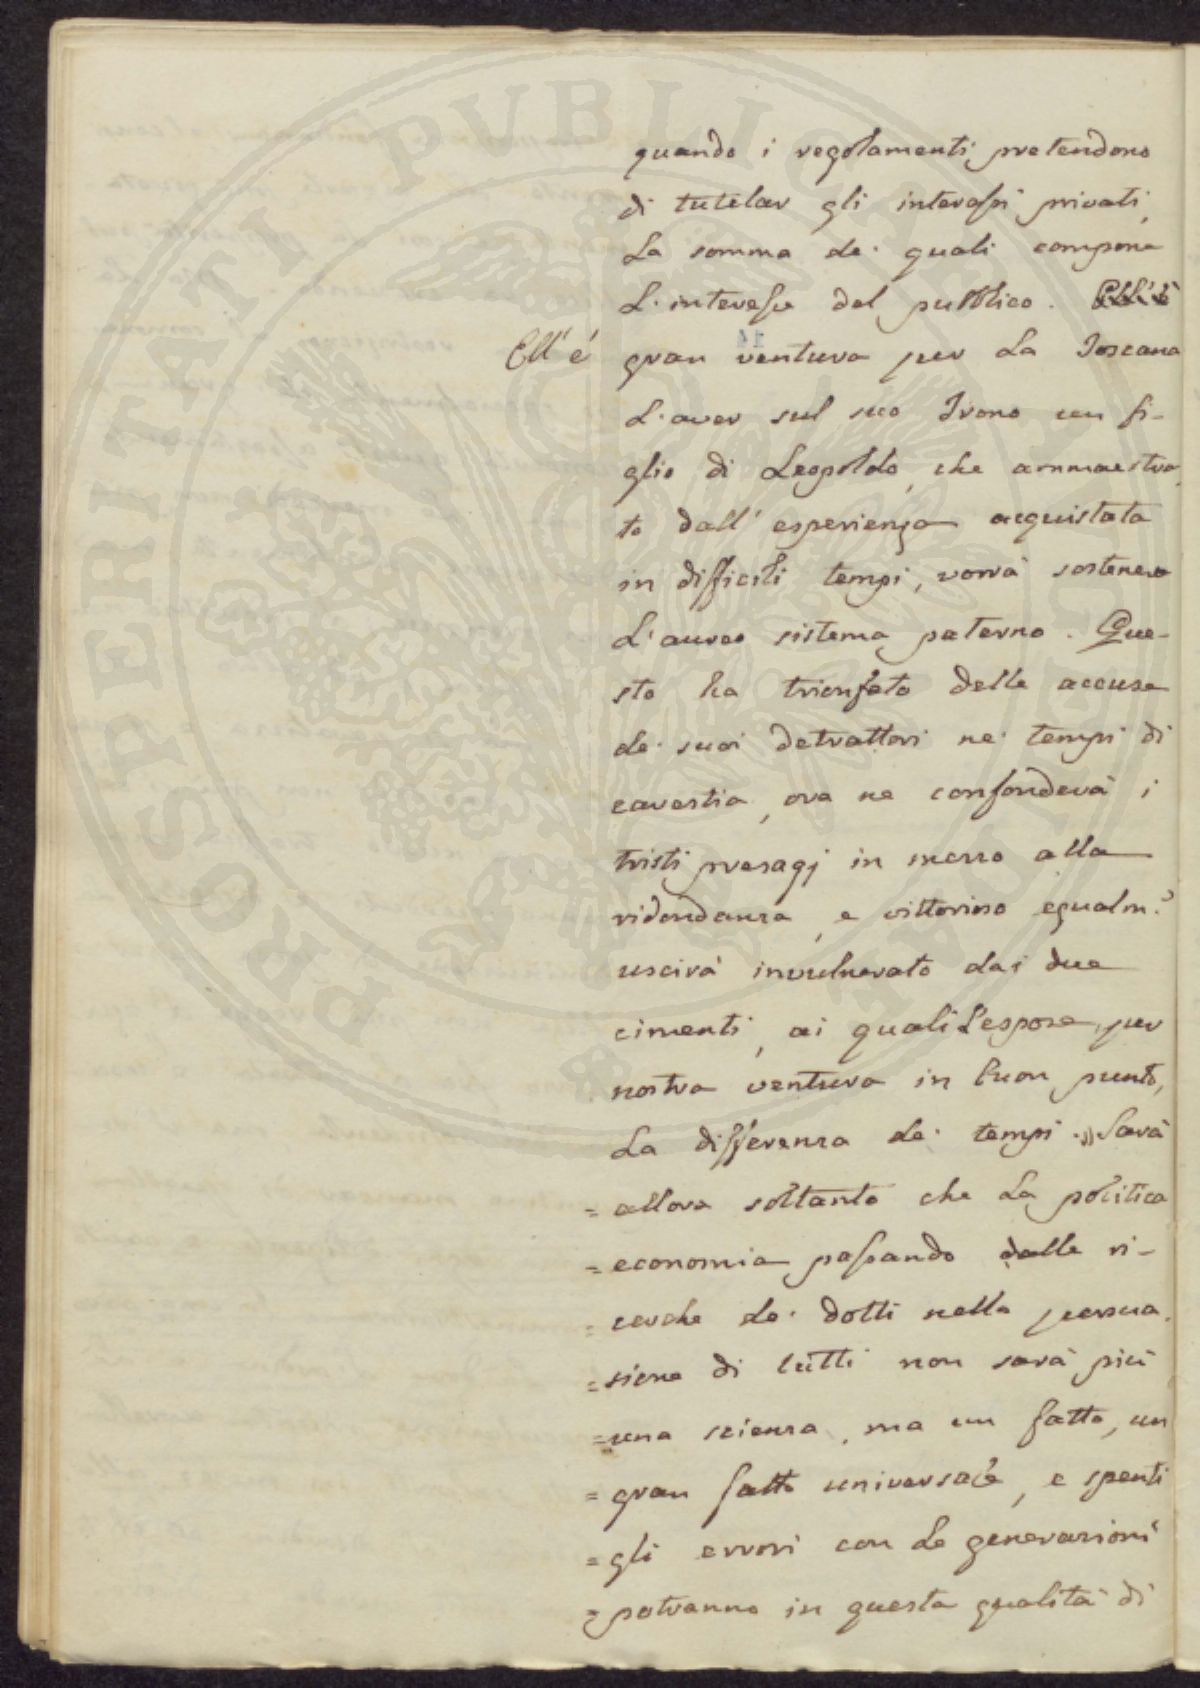 PROSPERITATI PUBLICAE
quando i regolamenti pretendono
di tutelar gli interessi privati,
la somma de' quali compone
l'interesse del pubblico. Ell'è
Ell' é gran ventura per la Toscana
l'aver sul suo Trono un fi-
glio di Leopoldo, che ammaestra-
to dall' esperienza acquistata
in difficili tempi, vorrà sostenere
l'aureo sistema paterno. Que-
sto ha trionfato delle accuse
de' suoi detrattori ne' tempi di
carestia, ove ne confondevà i
tristi presagj in mezzo alla
ridondanza, e vittorioso egualm.e
uscirà invulnerato dai due
cimenti, ai quali l'espose, per
nostra ventura in buon punto,
la differenza de' tempi. „ Sarà
= allora soltanto che la politica
= economia passando dalle ri-
= cerche de' dotti nella persua-
= sione di tutti non sarà più
= una scienza, ma un fatto, un
= gran fatto universale, e spenti
= gli errori con le generazioni
= potranno in questa qualità di